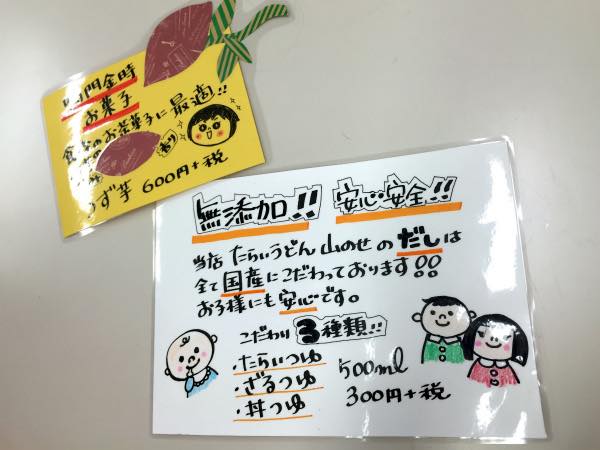 門金時
お菓子
お茶菓子に最適!!
うず芋 600円+税
無添加!! 安心安全!!
当店 たらいうどん 山のせ の だし は
全て国産にこだわっております!!
お子様にも安心です。
こだわり 3種類!!
・たらいつゆ 500ml
・ざるつゆ 300円+税
・丼つゆ